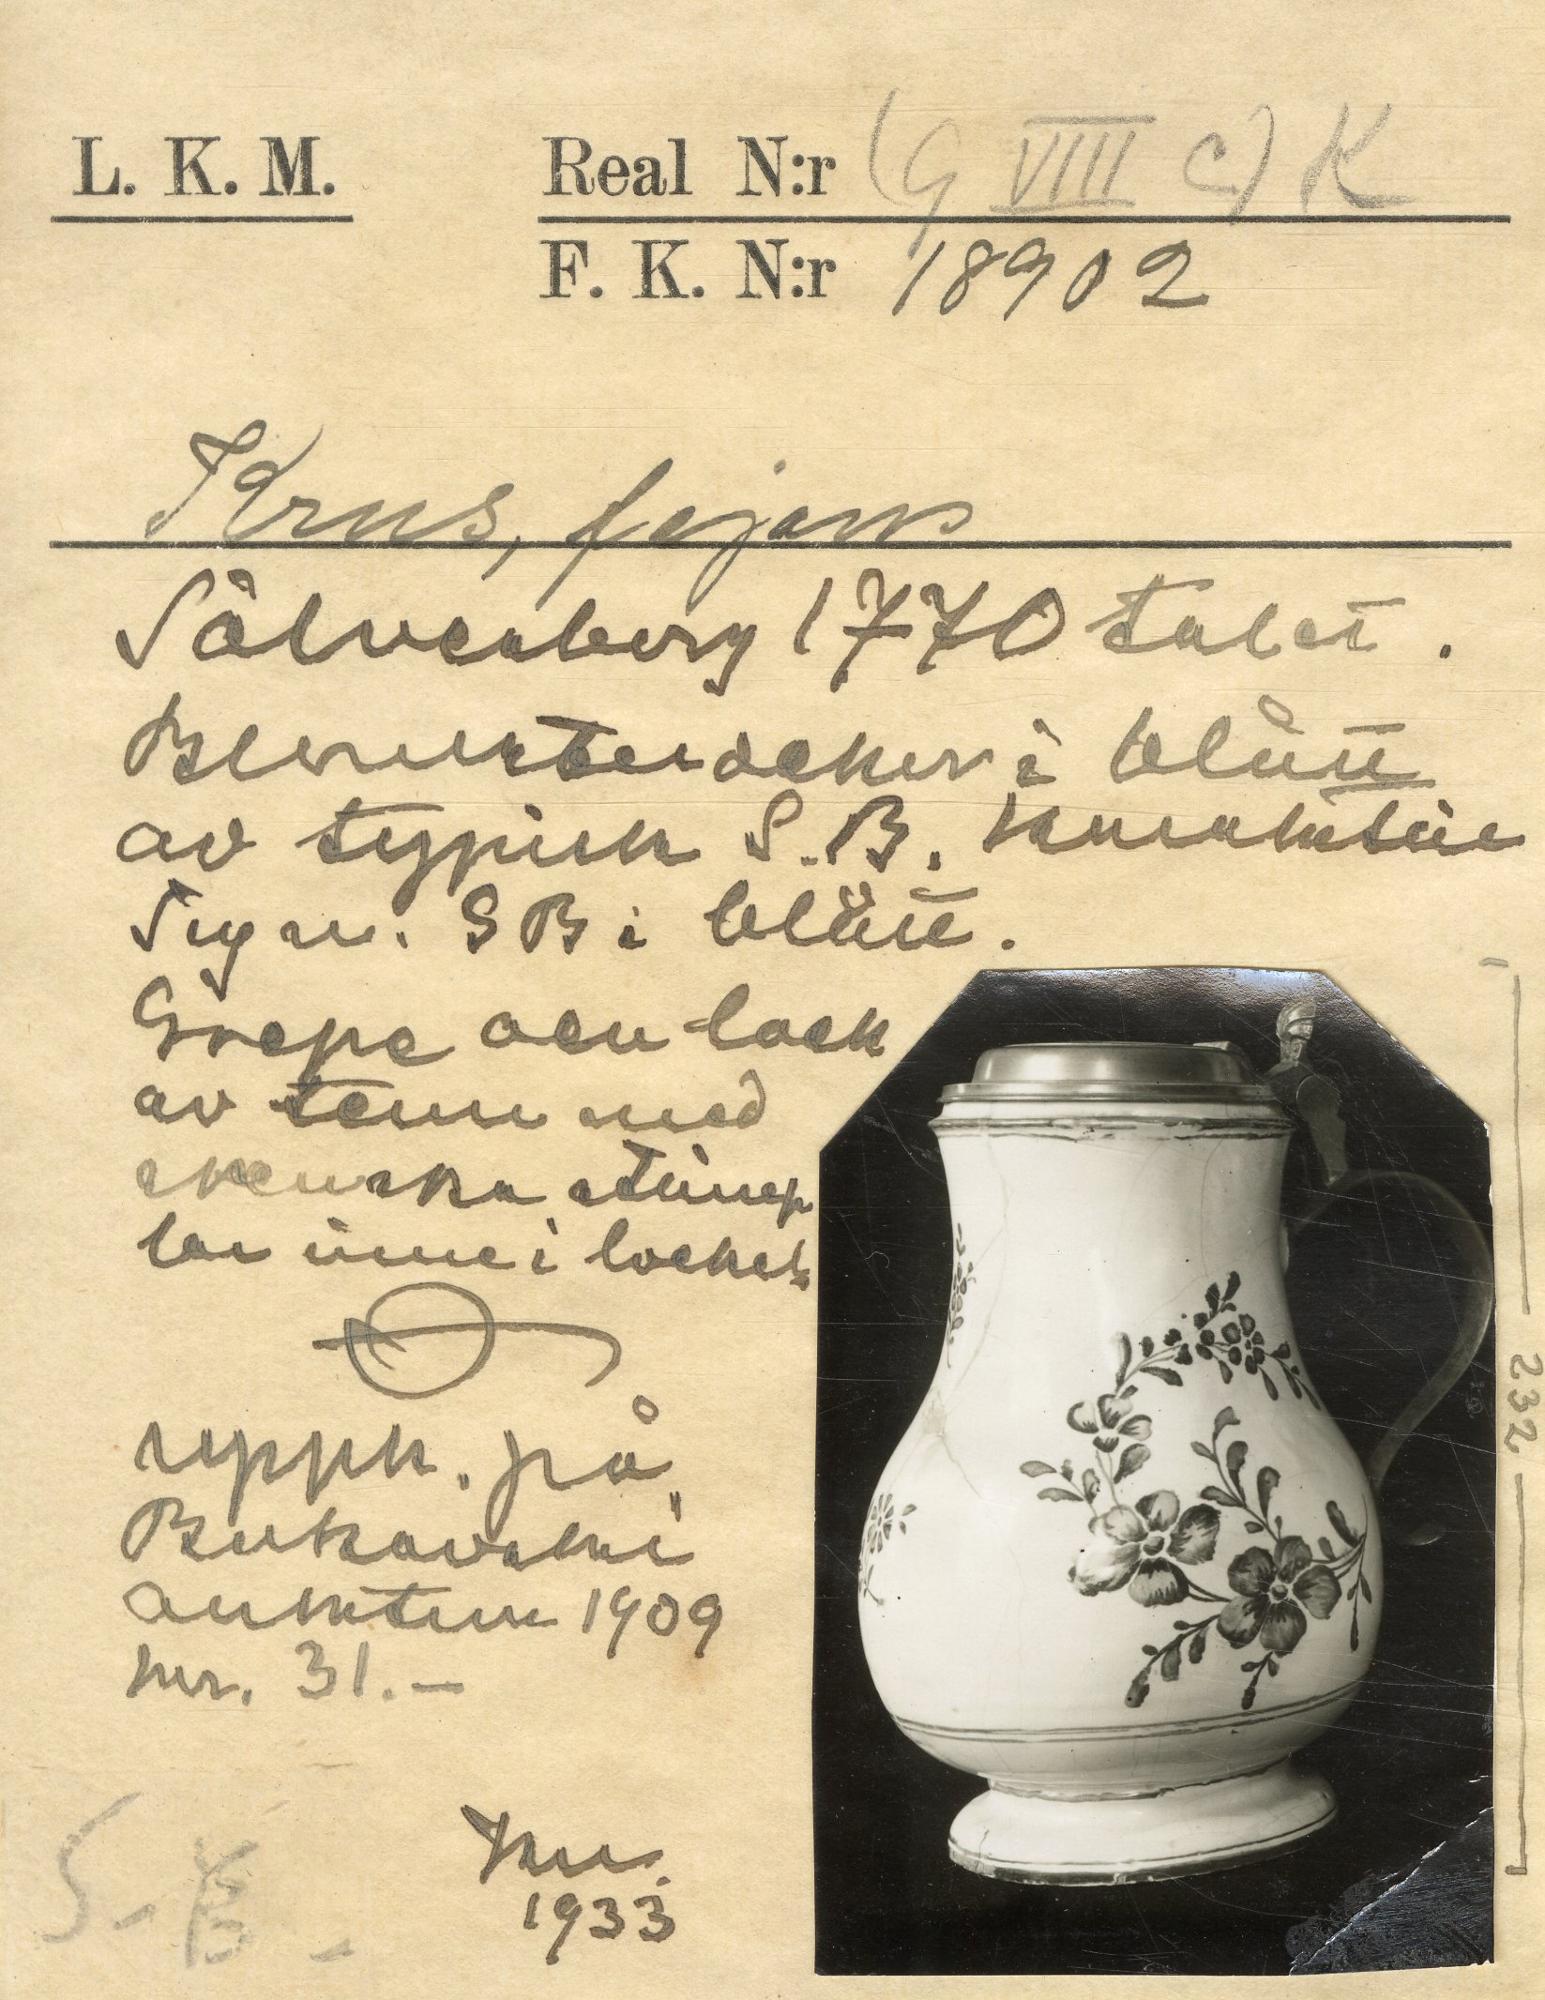 L. K. M.
Real N:r (G VIIII C) K
F. K. N:r 18902
Krus, fajans
Sölvesborg 1770 talet.
Blomsterdekor i blått
av typisk S.B. karaktär
Sign. SB i blått.
Grepe och lock
av tenn med
svenska stämp
lar inne i locket
uppk. på
Bukowski
auktion 1909
kr. 31.-
232
1933
S-B-